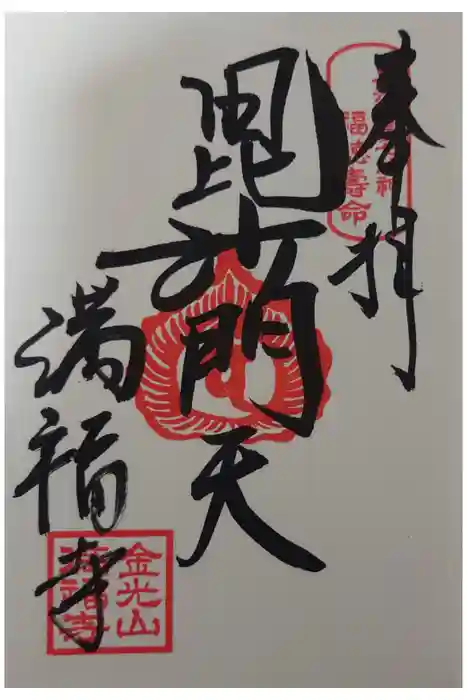 奉拝
毘沙門天
満福寺
神
福 壽命
金光山
福寺